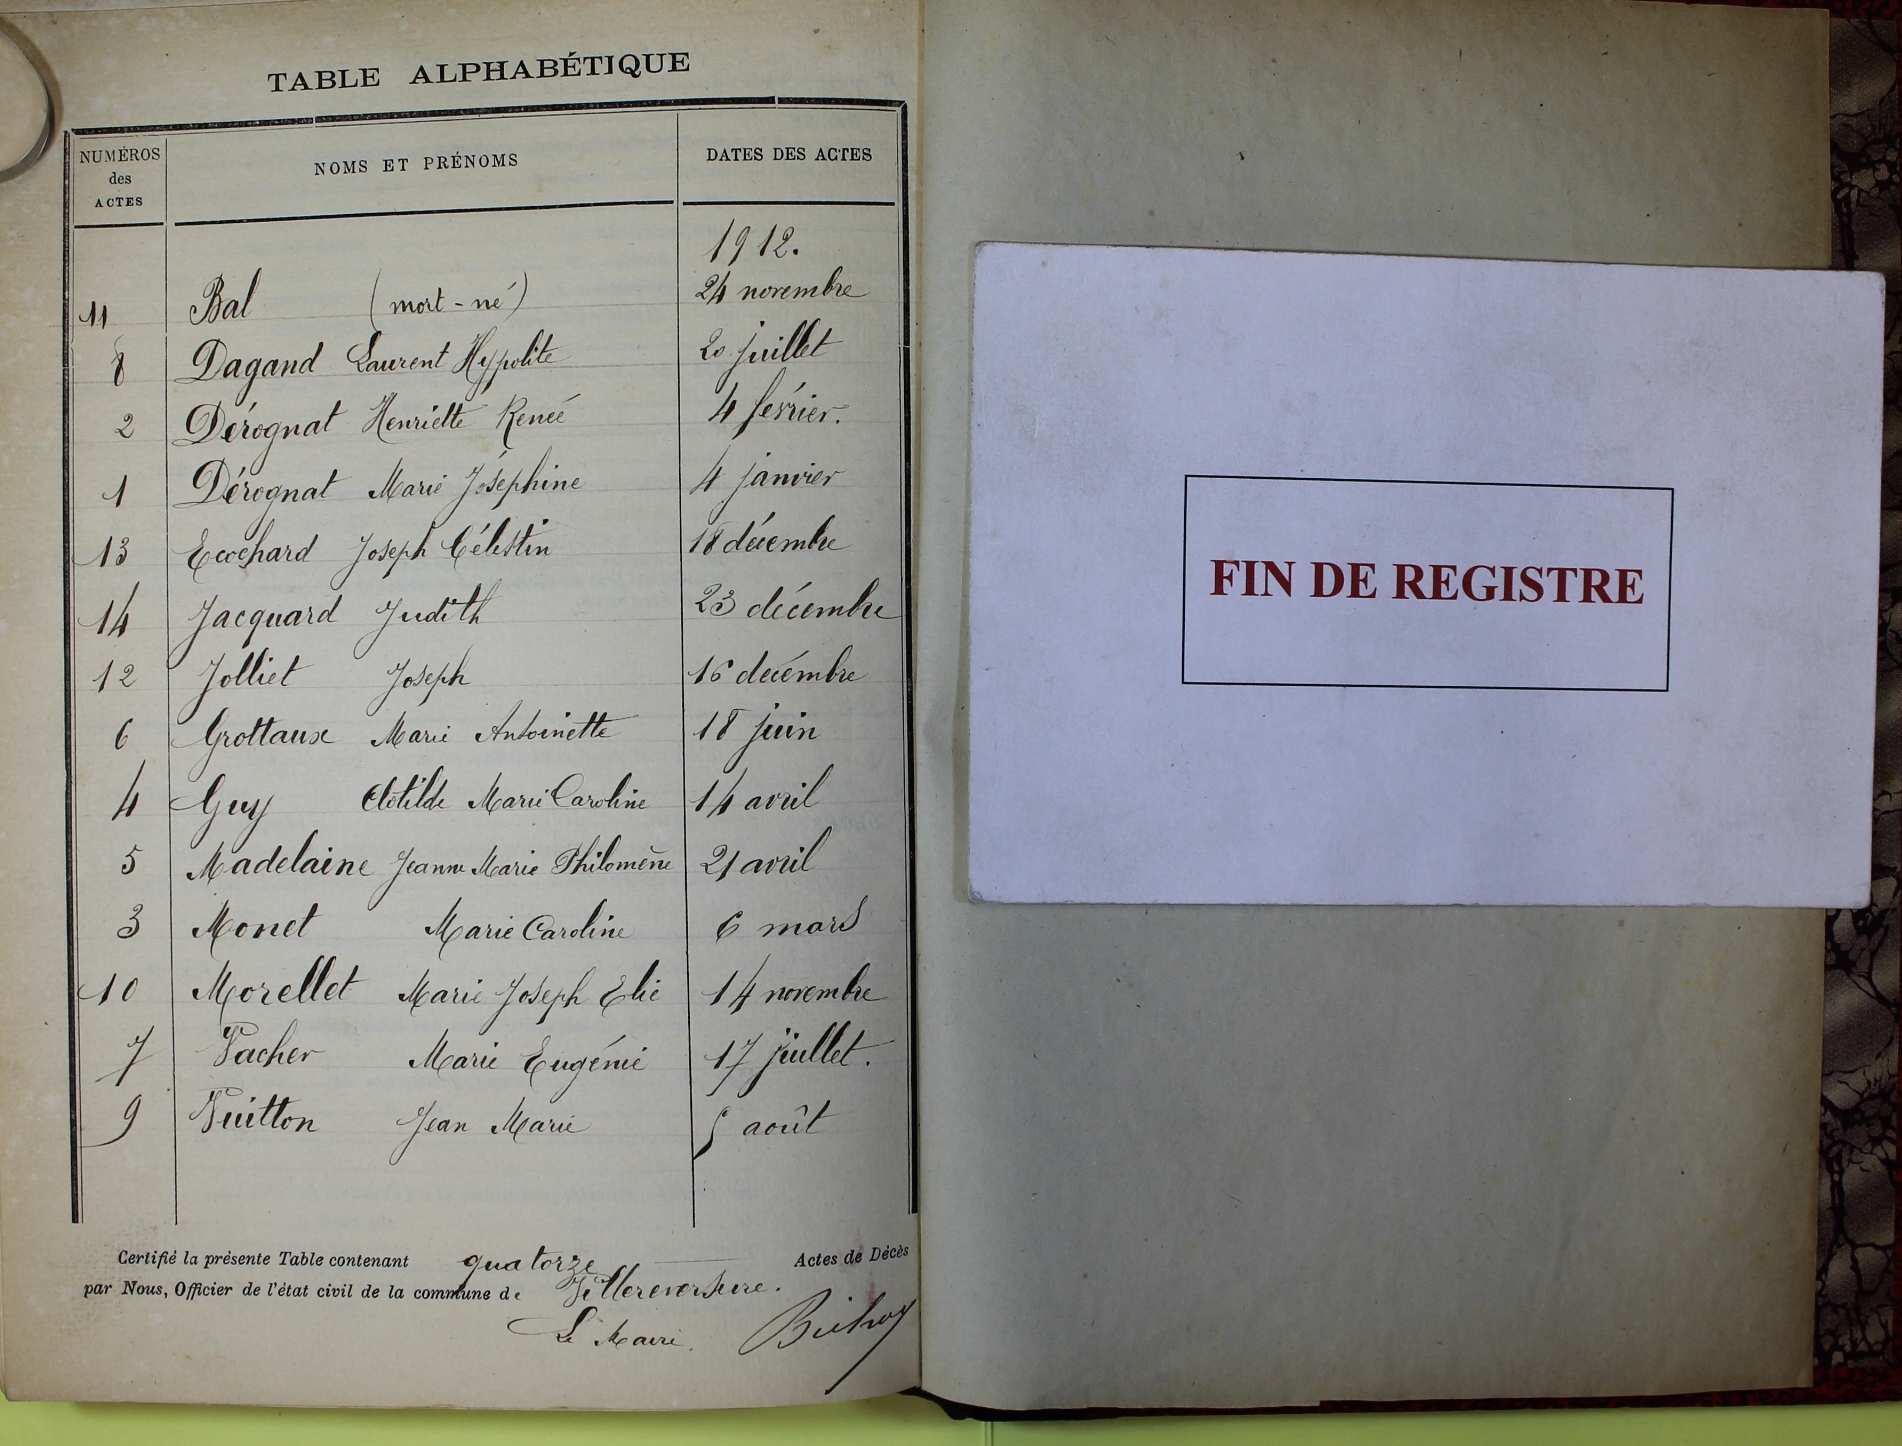 TABLE ALPHABÉTIQUE
NUMÉROS des ACTES NOMS ET PRÉNOMS DATES DES ACTES
1912.
11 Bal (mort-né) 24 novembre
8 Dagand Laurent Hypolite 20 juillet
2 Dérognat Henriette Renée 4 février.
1 Dérognat Marie Joséphine 4 janvier
13 Ecochard Joseph Célestin 18 décembre
14 Jacquard Judith 23 décembre
12 Jolliet Joseph 16 décembre
6 Grottaux Marie Antoinette 18 juin
4 Guy Clotilde Marie Caroline 14 avril
5 Madelaine Jeanne Marie Philomène 21 avril
3 Monet Marie Caroline 6 mars
10 Morellet Marie Joseph Elie 14 novembre
7 Vacher Marie Eugénie 17 juillet.
9 Vuitton Jean Marie 5 août
Certifié la présente Table contenant quatorze Actes de Décès
par Nous, Officier de l'état civil de la commune de Villereversure.
Le Maire.
FIN DE REGISTRE